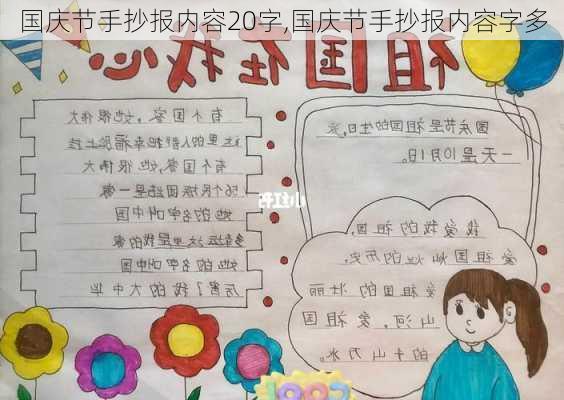 国庆节手抄报内容20字,国庆节手抄报内容字多
祖国在我心
有个国家,她很伟大
这里的人都把幸福脸上挂
有个国家,她很伟大
56个民族团结是一家
她的名字叫中国
多幸运这里是我的家
她的名字叫中国
厉害了我的大中华
国庆节是祖国的生日,
一天是10月1日。
我爱我的祖国,
爱祖国灿烂的历史,
爱祖国的壮丽
山河,爱祖国
的千山万水。
小红书